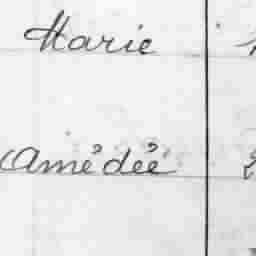 Marie
Amédée